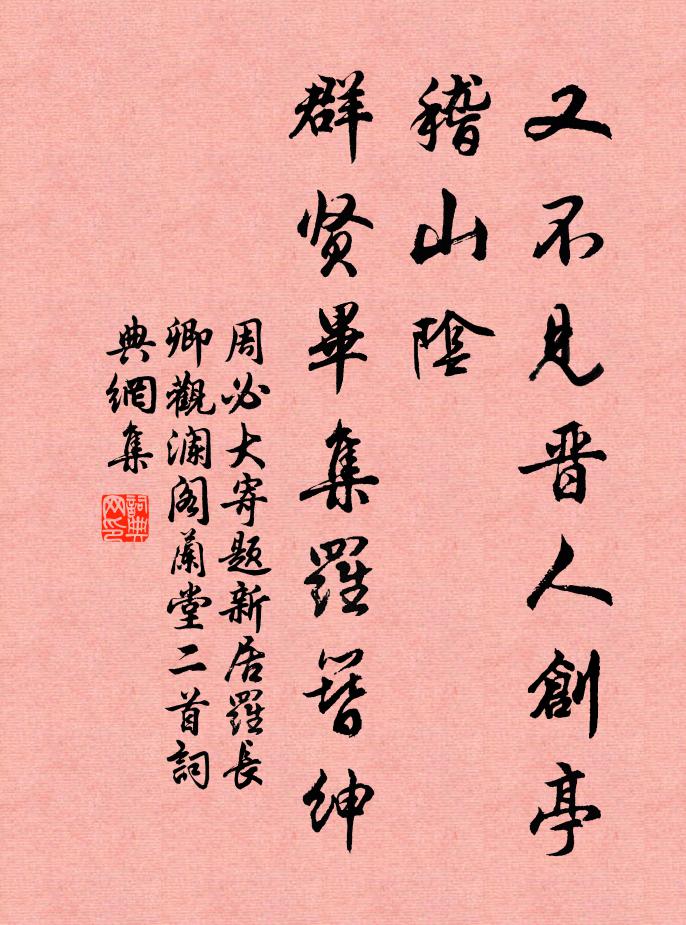 又不見晉人創亭
稽山陰
群贤畢集羅簪紳
周必大寄題新居羅長
卿觀澜阁蘭堂二首詞
典網集
詞典网印